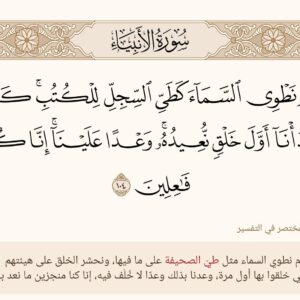 سُورَةُ الأَنبِيَاءِ
نَطْوِى ٱلسَّمَآءَ كَطَىِّ ٱلسِّجِلِّ لِلْكُتُبِ ۚ كَـ
دَأْنَآ أَوَّلَ خَلْقٍ نُّعِيدُهُۥ ۚ وَعْدًا عَلَيْنَآ ۚ إِنَّا كُـ
فَـٰعِلِينَ ١٠٤
مختصر في التفسير
م نطوي السماء مثل طيّ الصحيفة على ما فيها، ونحشر الخلق على هيئتهم
ي خلقوا بها أول مرة، وعدنا بذلك وعدًا لا خُلْف فيه، إنا كنا منجزين ما نعد به